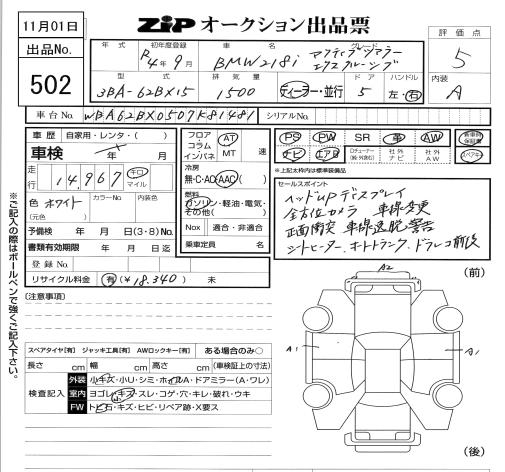 11月01日
ZIP オークション出品票
評価点
5
出品No.
502
年式 初年度登録 車名 グレード
R4年9月 BMW218i アクティブツアラー
エクスクルーシブ
型式 排気量 ドア ハンドル
3BA-62BX15 1500 ディーラー・並行 5 左・右
内装
A
車台No. WBA62BX0507K81481 シリアルNo.
車歴 自家用・レンタ・( )
車検 年 月
走行 14,967 キロ マイル
色 ホワイト カラーNo. 内装色
(元色)
予備検 年 月 日(3・8)No.
書類有効期限 年 月 日迄
登録No.
リサイクル料金 有(¥18,340) 未
フロア
コラム
インパネ
AT
MT 速
冷房
無・C・AC・AAC( )
燃料
ガソリン・軽油・電気・
その他( )
Nox 適合・非適合
乗車定員 名
PS PW SR 革 AW
ナビ エアB Dチューナー 社外ナビ 社外AW スペアキー
※上記太枠内は標準装備品
セールスポイント
ヘッドUPディスプレイ
全方位カメラ 車線変更
正面衝突 車線逸脱 警告
シートヒーター、オートトランク、ドラレコ前後
※ご記入の際はボールペンで強くご記入下さい。
[注意事項]
スペアタイヤ[有] ジャッキ工具[有] AWロックキー[有] ある場合のみ○
長さ cm 幅 cm 高さ cm (車検証上の寸法)
検査記入
外装 小キズ・小U・シミ・ホイルA・ドアミラー(A・ワレ)
室内 ヨゴレ・キズ・スレ・コゲ・穴・キレ・破れ・ウキ
小
FW トビ石・キズ・ヒビ・リペア跡・X要ス
(前)
A2
A1
A1
(後)